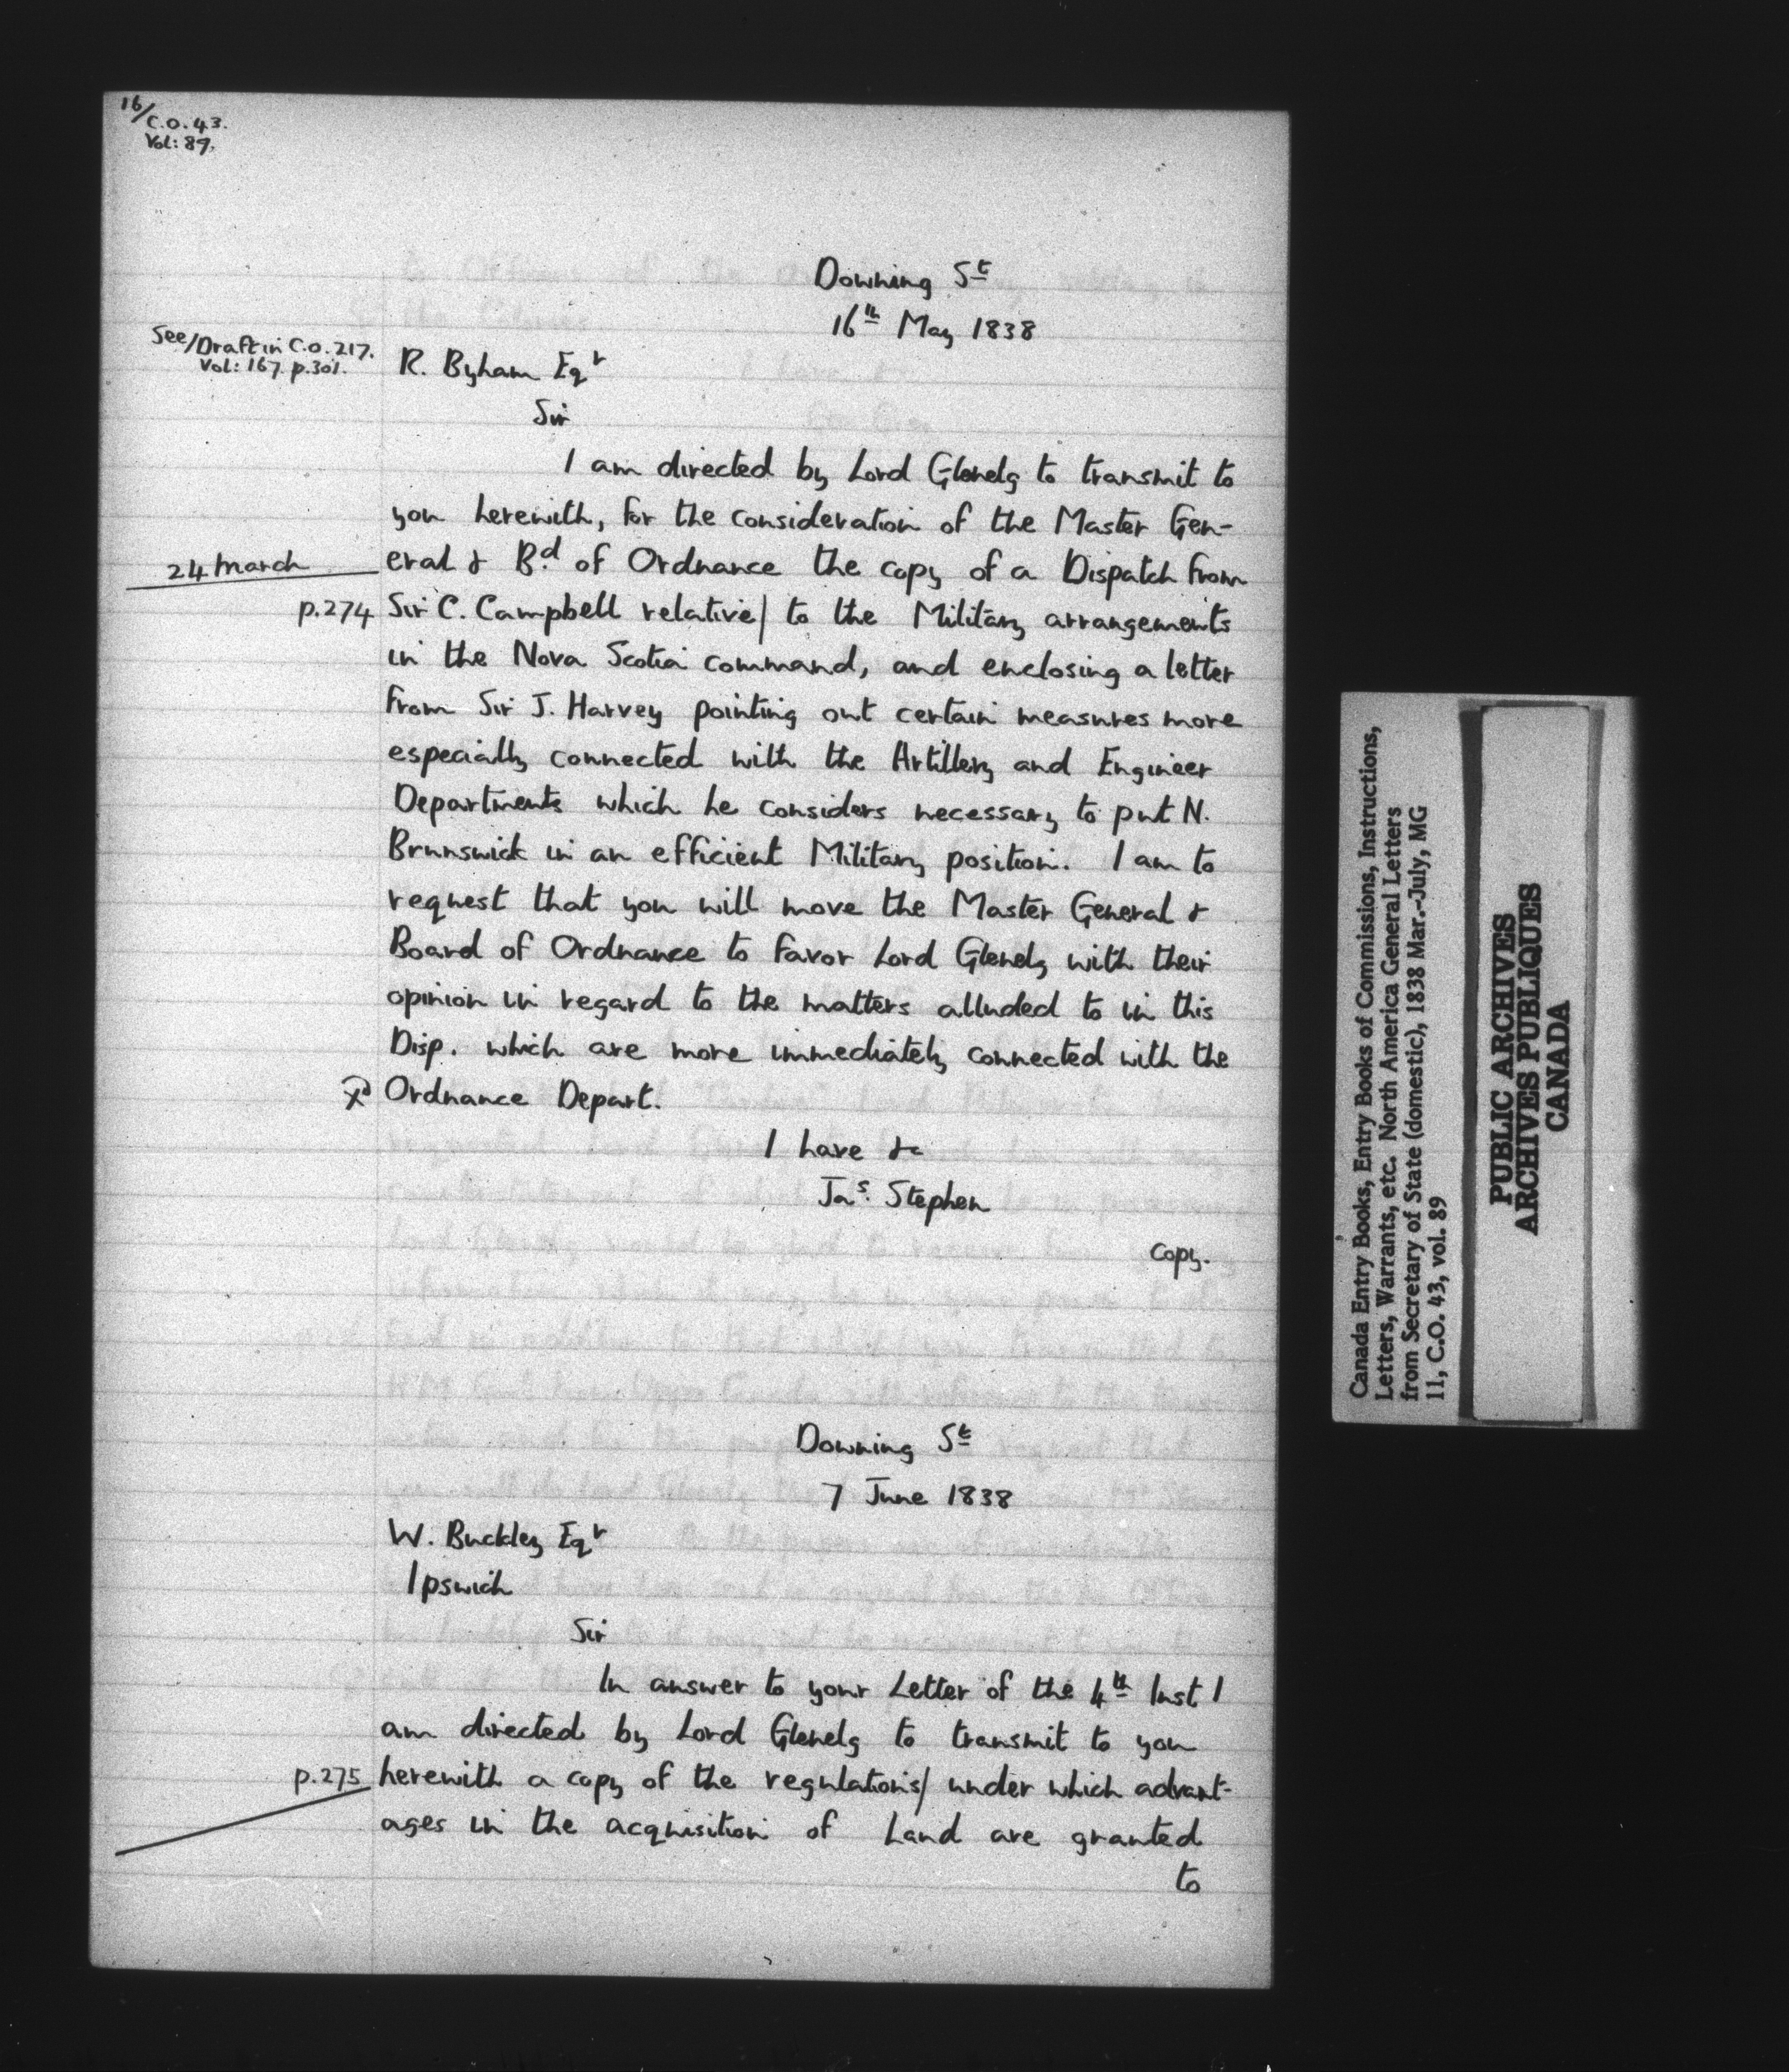 16/
C.O. 43.
Vol: 89.
Downing St
16th May 1838
See/Draft in C.O. 217.
Vol: 167. p.301.
R. Byham Eqr
Sir
I am directed by Lord Glenelg to transmit to
you herewith, for the consideration of the Master Gen-
24 March
eral & Bd. of Ordnance the copy of a Dispatch from
p.274 Sir C. Campbell relative/ to the Military arrangements
in the Nova Scotia command, and enclosing a letter
from Sir J. Harvey pointing out certain measures more
especially connected with the Artillery and Engineer
Departments which he considers necessary to put N.
Brunswick in an efficient Military position. I am to
request that you will move the Master General &
Board of Ordnance to favor Lord Glenelg with their
opinion in regard to the matters alluded to in this
Disp. which are more immediately connected with the
Ordnance Depart.
I have &c
Jas. Stephen
Copy.
Downing St
7 June 1838
W. Buckley Eqr
Ipswich
Sir
In answer to your Letter of the 4th Inst I
am directed by Lord Glenelg to transmit to you
p.275 herewith a copy of the regulations/ under which advant-
ages in the acquisition of Land are granted
to
Canada Entry Books, Entry Books of Commissions, Instructions,
Letters, Warrants, etc. North America General Letters
from Secretary of State (domestic), 1838 Mar.-July, MG
11, C.O. 43, vol. 89
PUBLIC ARCHIVES
ARCHIVES PUBLIQUES
CANADA